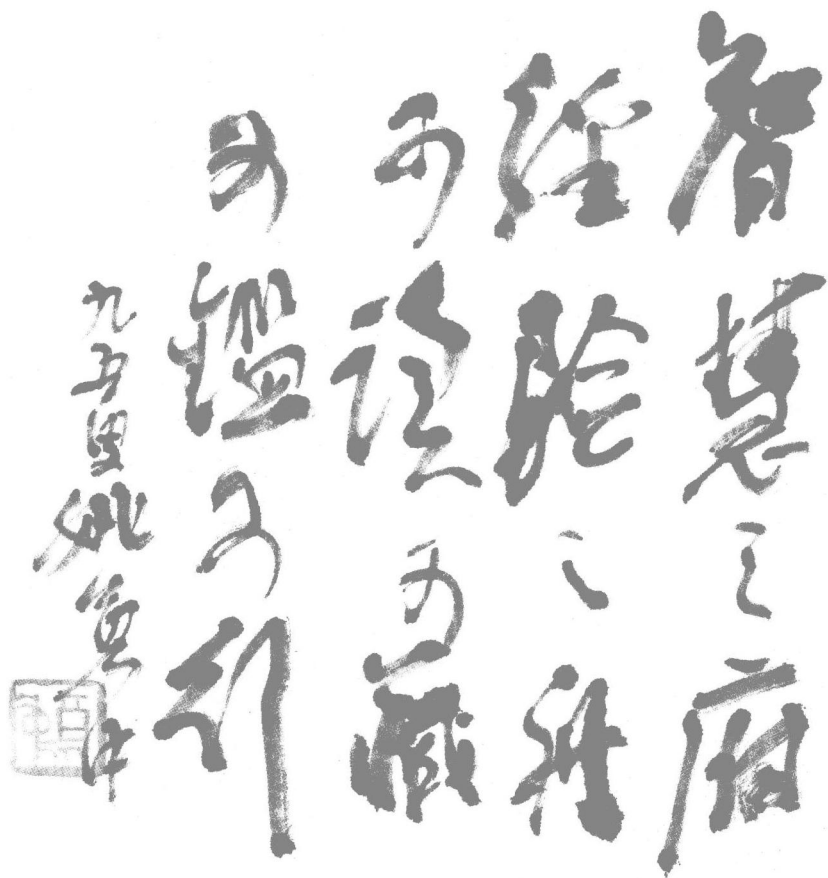 智慧之府
經驗之
可可藏
可鑑可引
九五叟姚奠中